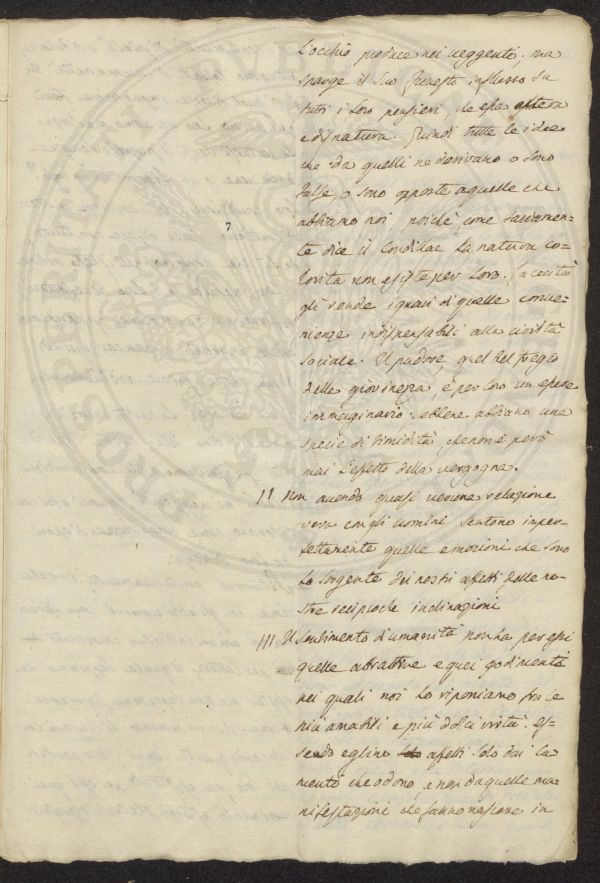 L'occhio produce nei veggenti, ma
sparge il suo funesto influsso su
tutti i loro pensieri, che essa altera
e disnatura. Quindi tutte le idee
che da quelli ne derivano o sono
false, o sono opposte a quelle che
abbiamo noi, poichè come saviamen-
te dice il Condilac la natura co-
lorita non esiste per loro. La cecità
gli rende ignari di quelle conve-
nienze indispensabili alla civiltà
sociale. Il pudore, quel bel fregio
della giovinezza, è per loro un essere
immaginario sebbene abbiano una
specie di timidità, che non è però
mai l'effetto della vergogna.
7
II Non avendo quasi veruna relazione
vera con gli uomini sentono imper-
fettamente quelle emozioni che sono
la sorgente dei nostri affetti delle no-
stre reciproche inclinazioni
III Il sentimento d'umanità non ha per essi
quelle attrattive e quei godimenti
nei quali noi lo riponiamo fra le
più amabili e più dolci virtù. Es-
sendo eglino affetti solo dai la-
menti che odono, e non da quelle ma-
nifestazioni che fanno nascere in